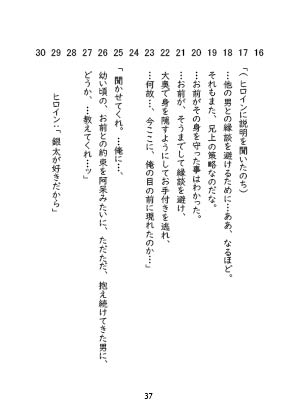 16
17 「(ヒロインに説明を聞いたのち)
18 …他の男との縁談を避けるために…ああ、なるほど。
19 それもまた、兄上の策略なのだな。
20 …お前がその身を守った事はわかった。
21 …お前が、そうまでして縁談を避け、
22 大奥で身を隠すようにしてお手付きを逃れ、
23 …何故…、今ここに、俺の目の前に現れたのか…」
24
25 「聞かせてくれ。…俺に…、
26 幼い頃の、お前との約束を阿呆みたいに、ただただ、抱え続けてきた男に、
27 どうか、…教えてくれ…ッ」
28
29 ヒロイン:「銀太が好きだから」
30
37